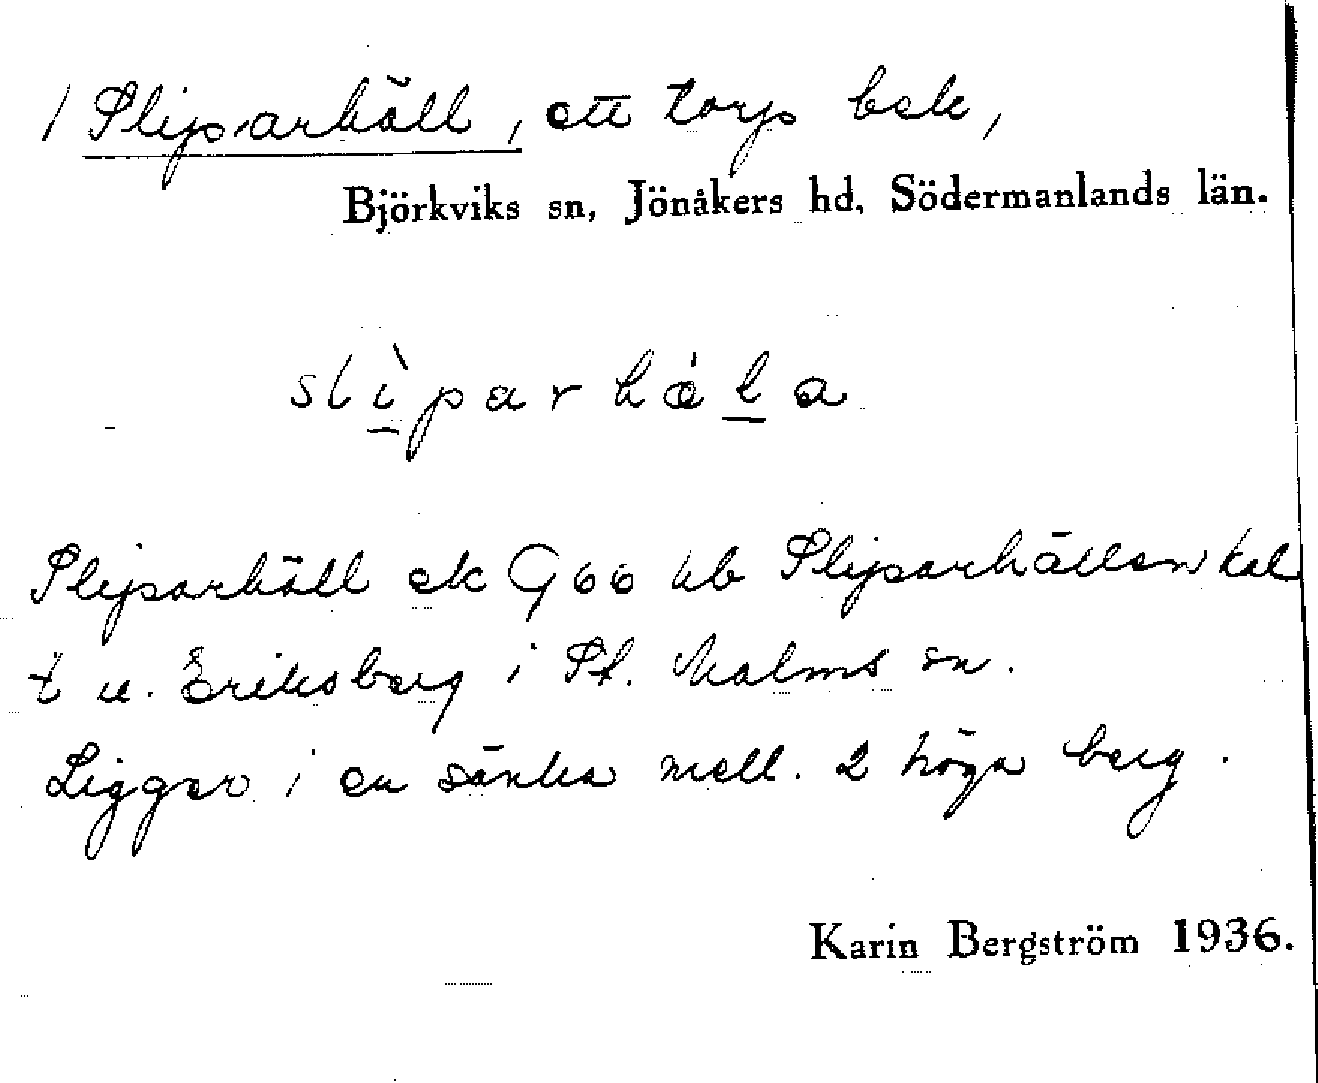 / Sliparhäll, ett torp beb,
Björkviks sn, Jönåkers hd, Södermanlands län.
slìparhàla
Sliparhäll ek G66 hb Sliparhällen kal
t u. Eriksberg i St. Malms sn.
Ligger i en sänka mell. 2 höga berg.
Karin Bergström 1936.